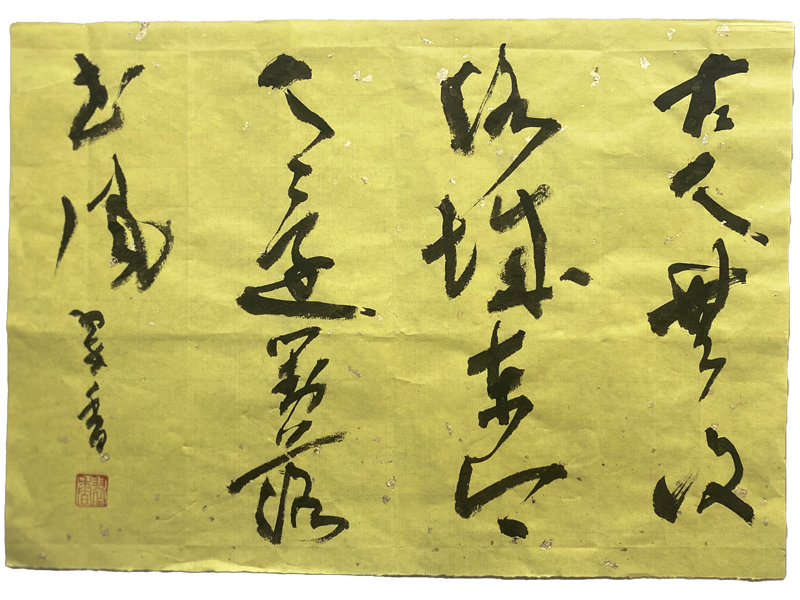 古人無復
洛城東今
人還對落
花風
翠香